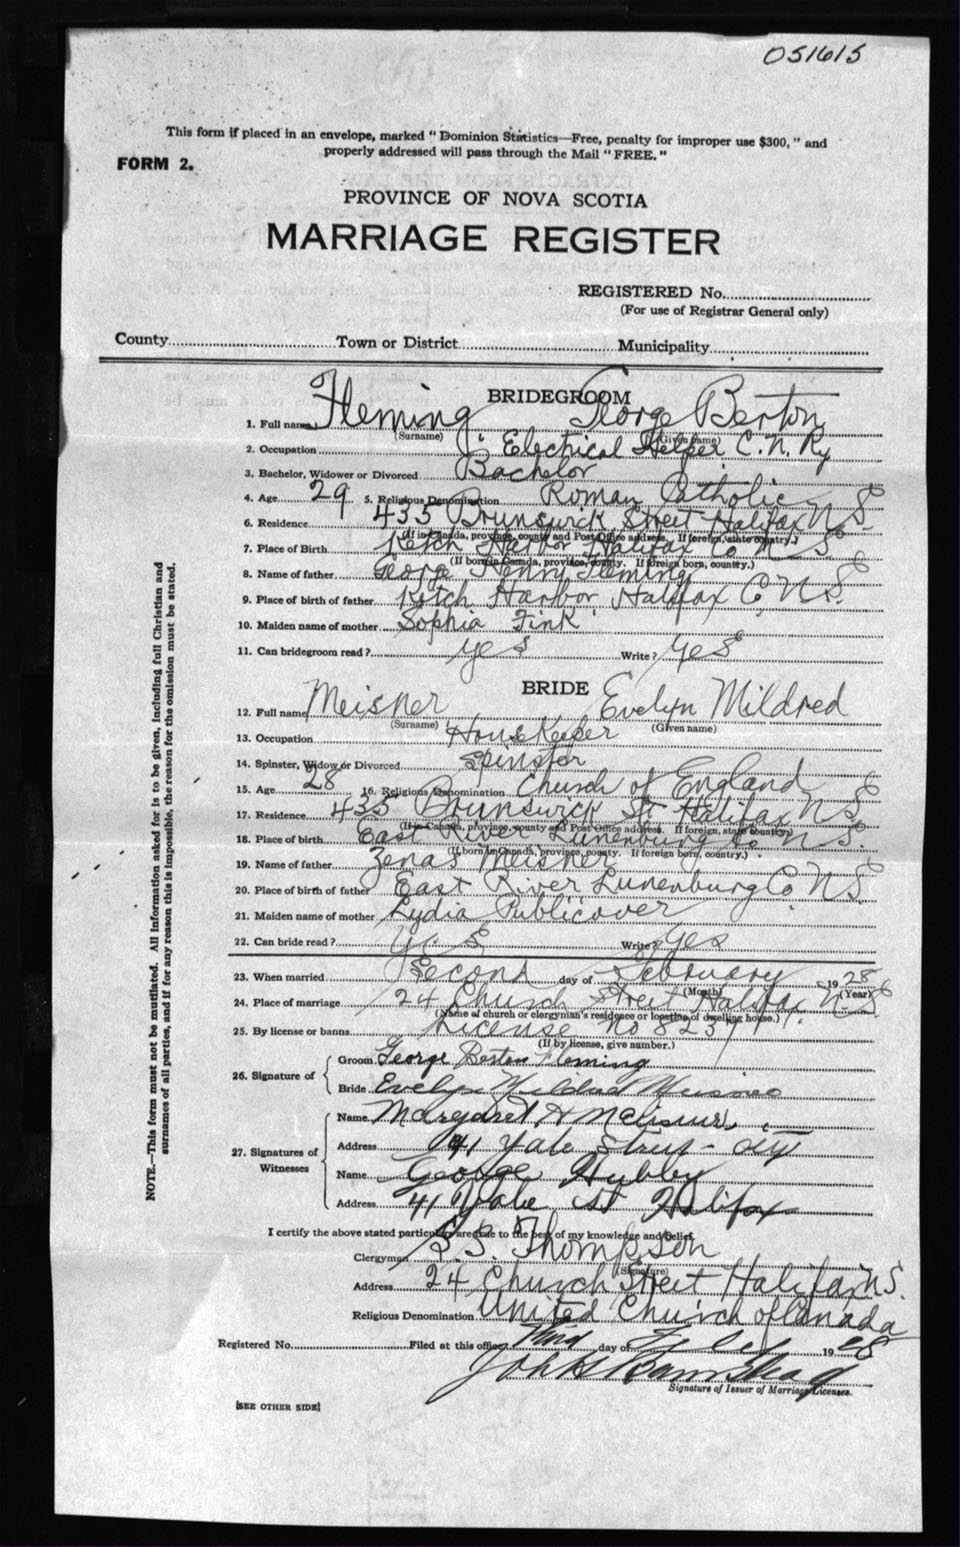 051615
This form if placed in an envelope, marked "Dominion Statistics—Free, penalty for improper use $300," and
properly addressed will pass through the Mail "FREE."
FORM 2.
PROVINCE OF NOVA SCOTIA
MARRIAGE REGISTER
REGISTERED No.
(For use of Registrar General only)
County Town or District Municipality
BRIDEGROOM
1. Full name Fleming George Berton
(Surname) (Given name)
2. Occupation Electrical Helper C. N. Ry
3. Bachelor, Widower or Divorced Bachelor
4. Age 29 5. Religious Denomination Roman Catholic
6. Residence 435 Brunswick Street Halifax N S.
(If in Canada, province, county and Post Office address. If foreign, state country.)
7. Place of Birth Ketch Harbor Halifax Co N S
(If born in Canada, province, county. If foreign born, country.)
8. Name of father George Henry Fleming
9. Place of birth of father Ketch Harbor Halifax Co N S.
10. Maiden name of mother Sophia Fink
11. Can bridegroom read? yes Write? yes
BRIDE
12. Full name Meisner Evelyn Mildred
(Surname) (Given name)
13. Occupation HouseKeeper
14. Spinster, Widow or Divorced Spinster
15. Age 28 16. Religious Denomination Church of England
17. Residence 435 Brunswick St Halifax N S.
(If in Canada, province, county and Post Office address. If foreign, state country)
18. Place of birth East River Lunenburg Co N S.
(If born in Canada, province, county. If foreign born, country.)
19. Name of father Zenas Meisner
20. Place of birth of father East River Lunenburg Co N S.
21. Maiden name of mother Lydia Publicover
22. Can bride read? yes Write? yes
23. When married Second day of February 1928
(Month) (Year)
24. Place of marriage 24 Church Street Halifax. N S.
(Name of church or clergyman's residence or location of dwelling house.)
25. By license or banns License No
(If by license, give number.)
26. Signature of
Groom George Berton Fleming
Bride Evelyn Mildred Meisner
27. Signatures of
Witnesses
Name Margaret H
Address 41 Yale
Name George Hubby
Address 41 Yale St Halifax
I certify the above stated particulars are true to the best of my knowledge and belief.
Clergyman Thompson
(Signature)
Address 24 Church Street Halifax N S.
Religious Denomination United Church of Canada
Registered No. Filed at this office Third day of Feb 1928
Signature of Issuer of Marriage Licenses.
[SEE OTHER SIDE]
NOTE.—This form must not be mutilated. All information asked for is to be given, including full Christian and
surnames of all parties, and if for any reason this is impossible, the reason for the omission must be stated.